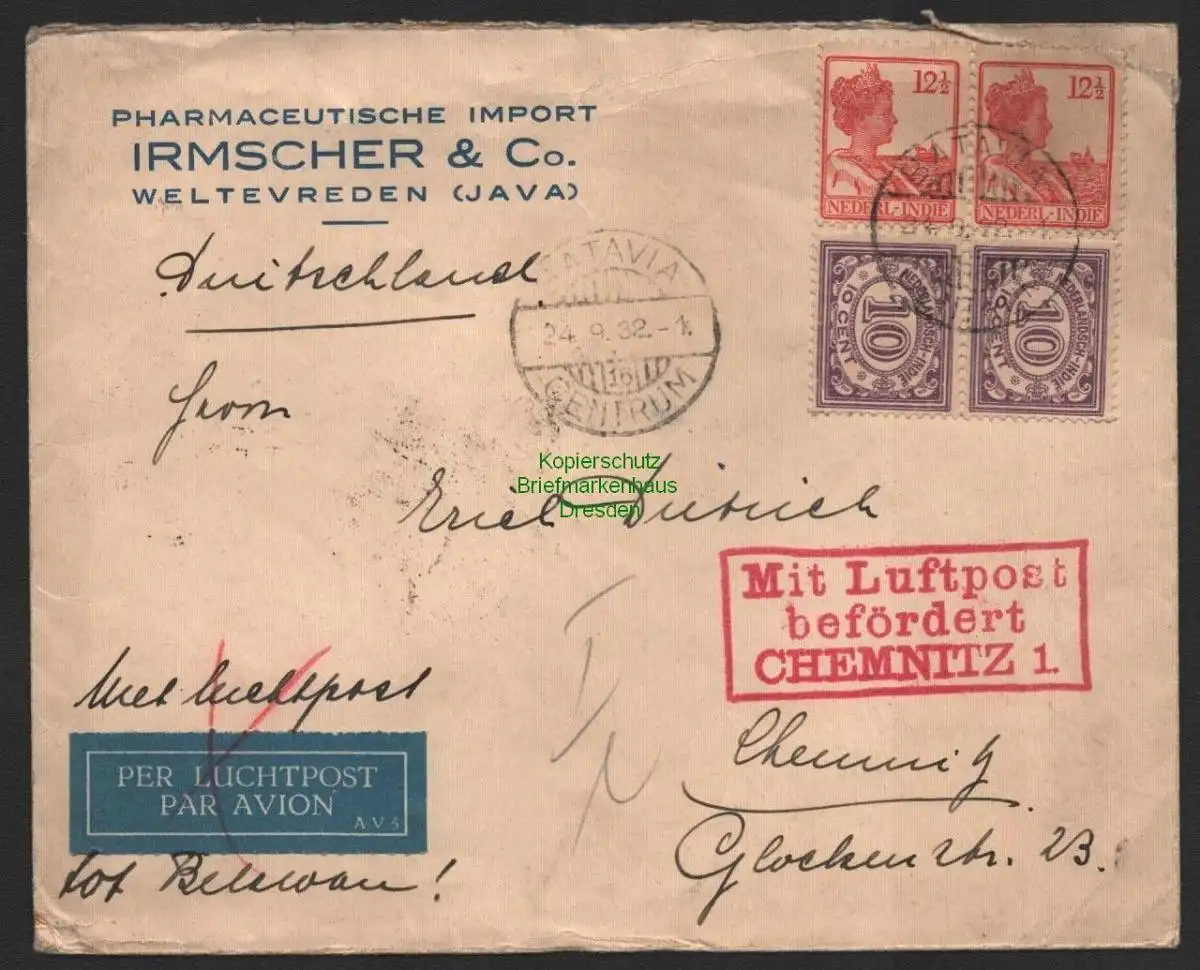 PHARMACEUTISCHE IMPORT
IRMSCHER & Co.
WELTEVREDEN (JAVA)
12½
12½
NEDERL-INDIE
NEDERL-INDIE
NEDERLANDSCH-INDIE
10
10 CENT
NEDERLANDSCH-INDIE
10
10 CENT
BATAVIA
Duitschland
BATAVIA
24.9.32.-1.
16
CENTRUM
Herrn
Kopierschutz
Briefmarkenhaus
Dresden
Erich Dietrich
Mit Luftpost
befördert
CHEMNITZ 1.
Met luchtpost
PER LUCHTPOST
PAR AVION
AV5
tot Belawan!
Chemnitz
Glockenstr. 23.